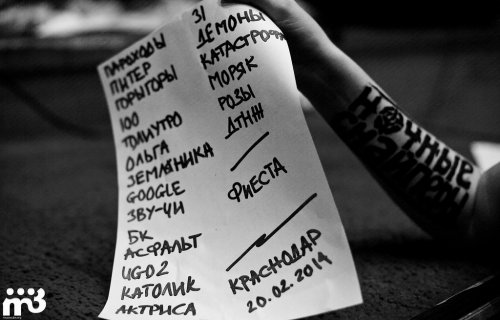 ПАРОХОДЫ
ПИТЕР
ГОРЫГОРЫ
100
ТОЛИУТРО
ОЛЬГА
ЗЕМЛЯНИКА
GOOGLE
ЗВУ-ЧИ
БК
АСФАЛЬТ
UGO2
КАТОЛИК
АКТРИСА
31
ДЕМОНЫ
КАТАСТРОФ
МОРЯК
РОЗЫ
ДТНЖ
ФИЕСТА
КРАСНОДАР
20.02.2014
НОЧНЫЕ
СНАЙПЕРЫ
m3